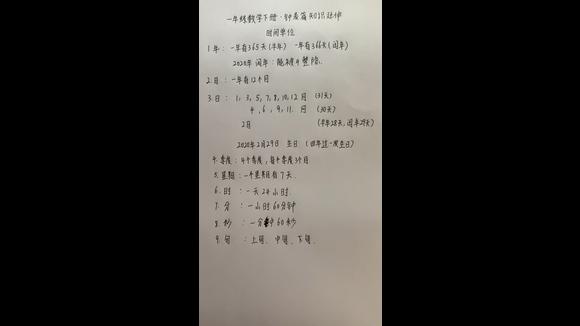 一年级数学下册·钟表篇知识延伸
时间单位
1.年：一年有365天(平年) 一年有366天(闰年)
2020年 闰年：能被4整除.
2.月：一年有12个月
3.日：1, 3, 5, 7, 8, 10, 12 月 (31天)
4, 6, 9, 11. 月 (30天)
2月 (平年28天, 闰年29天)
2020年2月29日 生日 (四年过一次生日)
4.季度：4个季度, 每个季度3个月
5.星期：一个星期有7天.
6.时：一天24小时.
7.分：一小时60分钟
8.秒：一分钟60秒
9.旬：上旬、中旬、下旬.